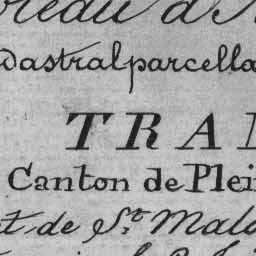 reau d'A
dastral parcella
TRAN
Canton de Plei
t de St. Malo